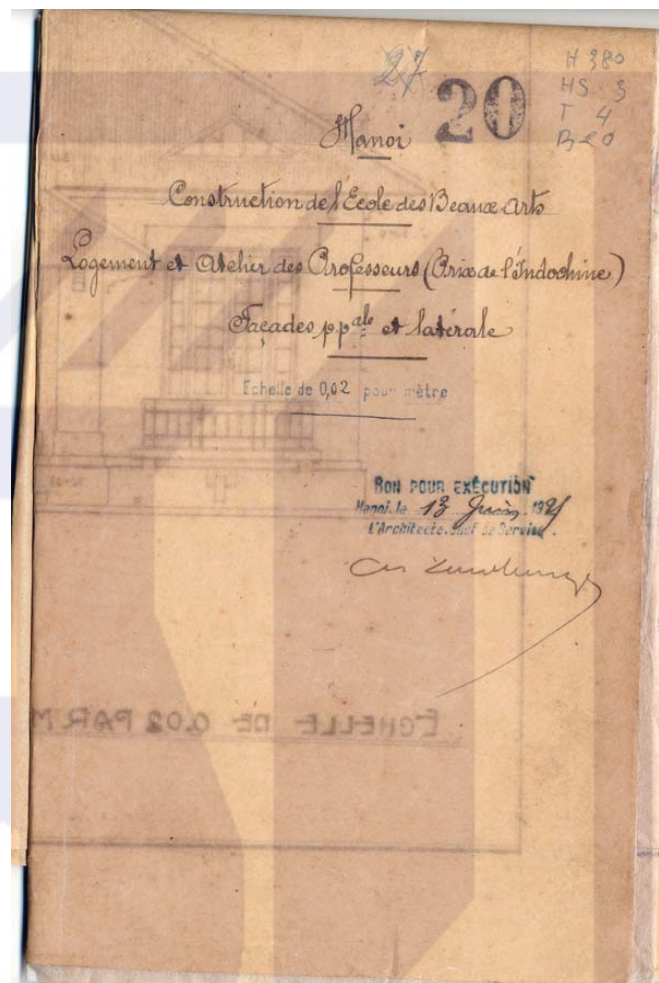 27
20
H 380
HS 3
T 4
B 20
Hanoi
Construction de l'École des Beaux Arts
Logement et Atelier des Professeurs (Prix de l'Indochine)
Façades pp.ale et latérale
Echelle de 0,02 pour mètre
BON POUR EXÉCUTION
Hanoi, le 13 Juin 192
L'Architecte, Chef de Service.
ÉCHELLE DE 0.02 PAR M